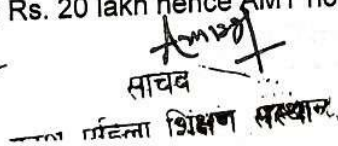 Rs. 20 lakh hence AMT no
सचिव
महिला शिक्षण संस्थान